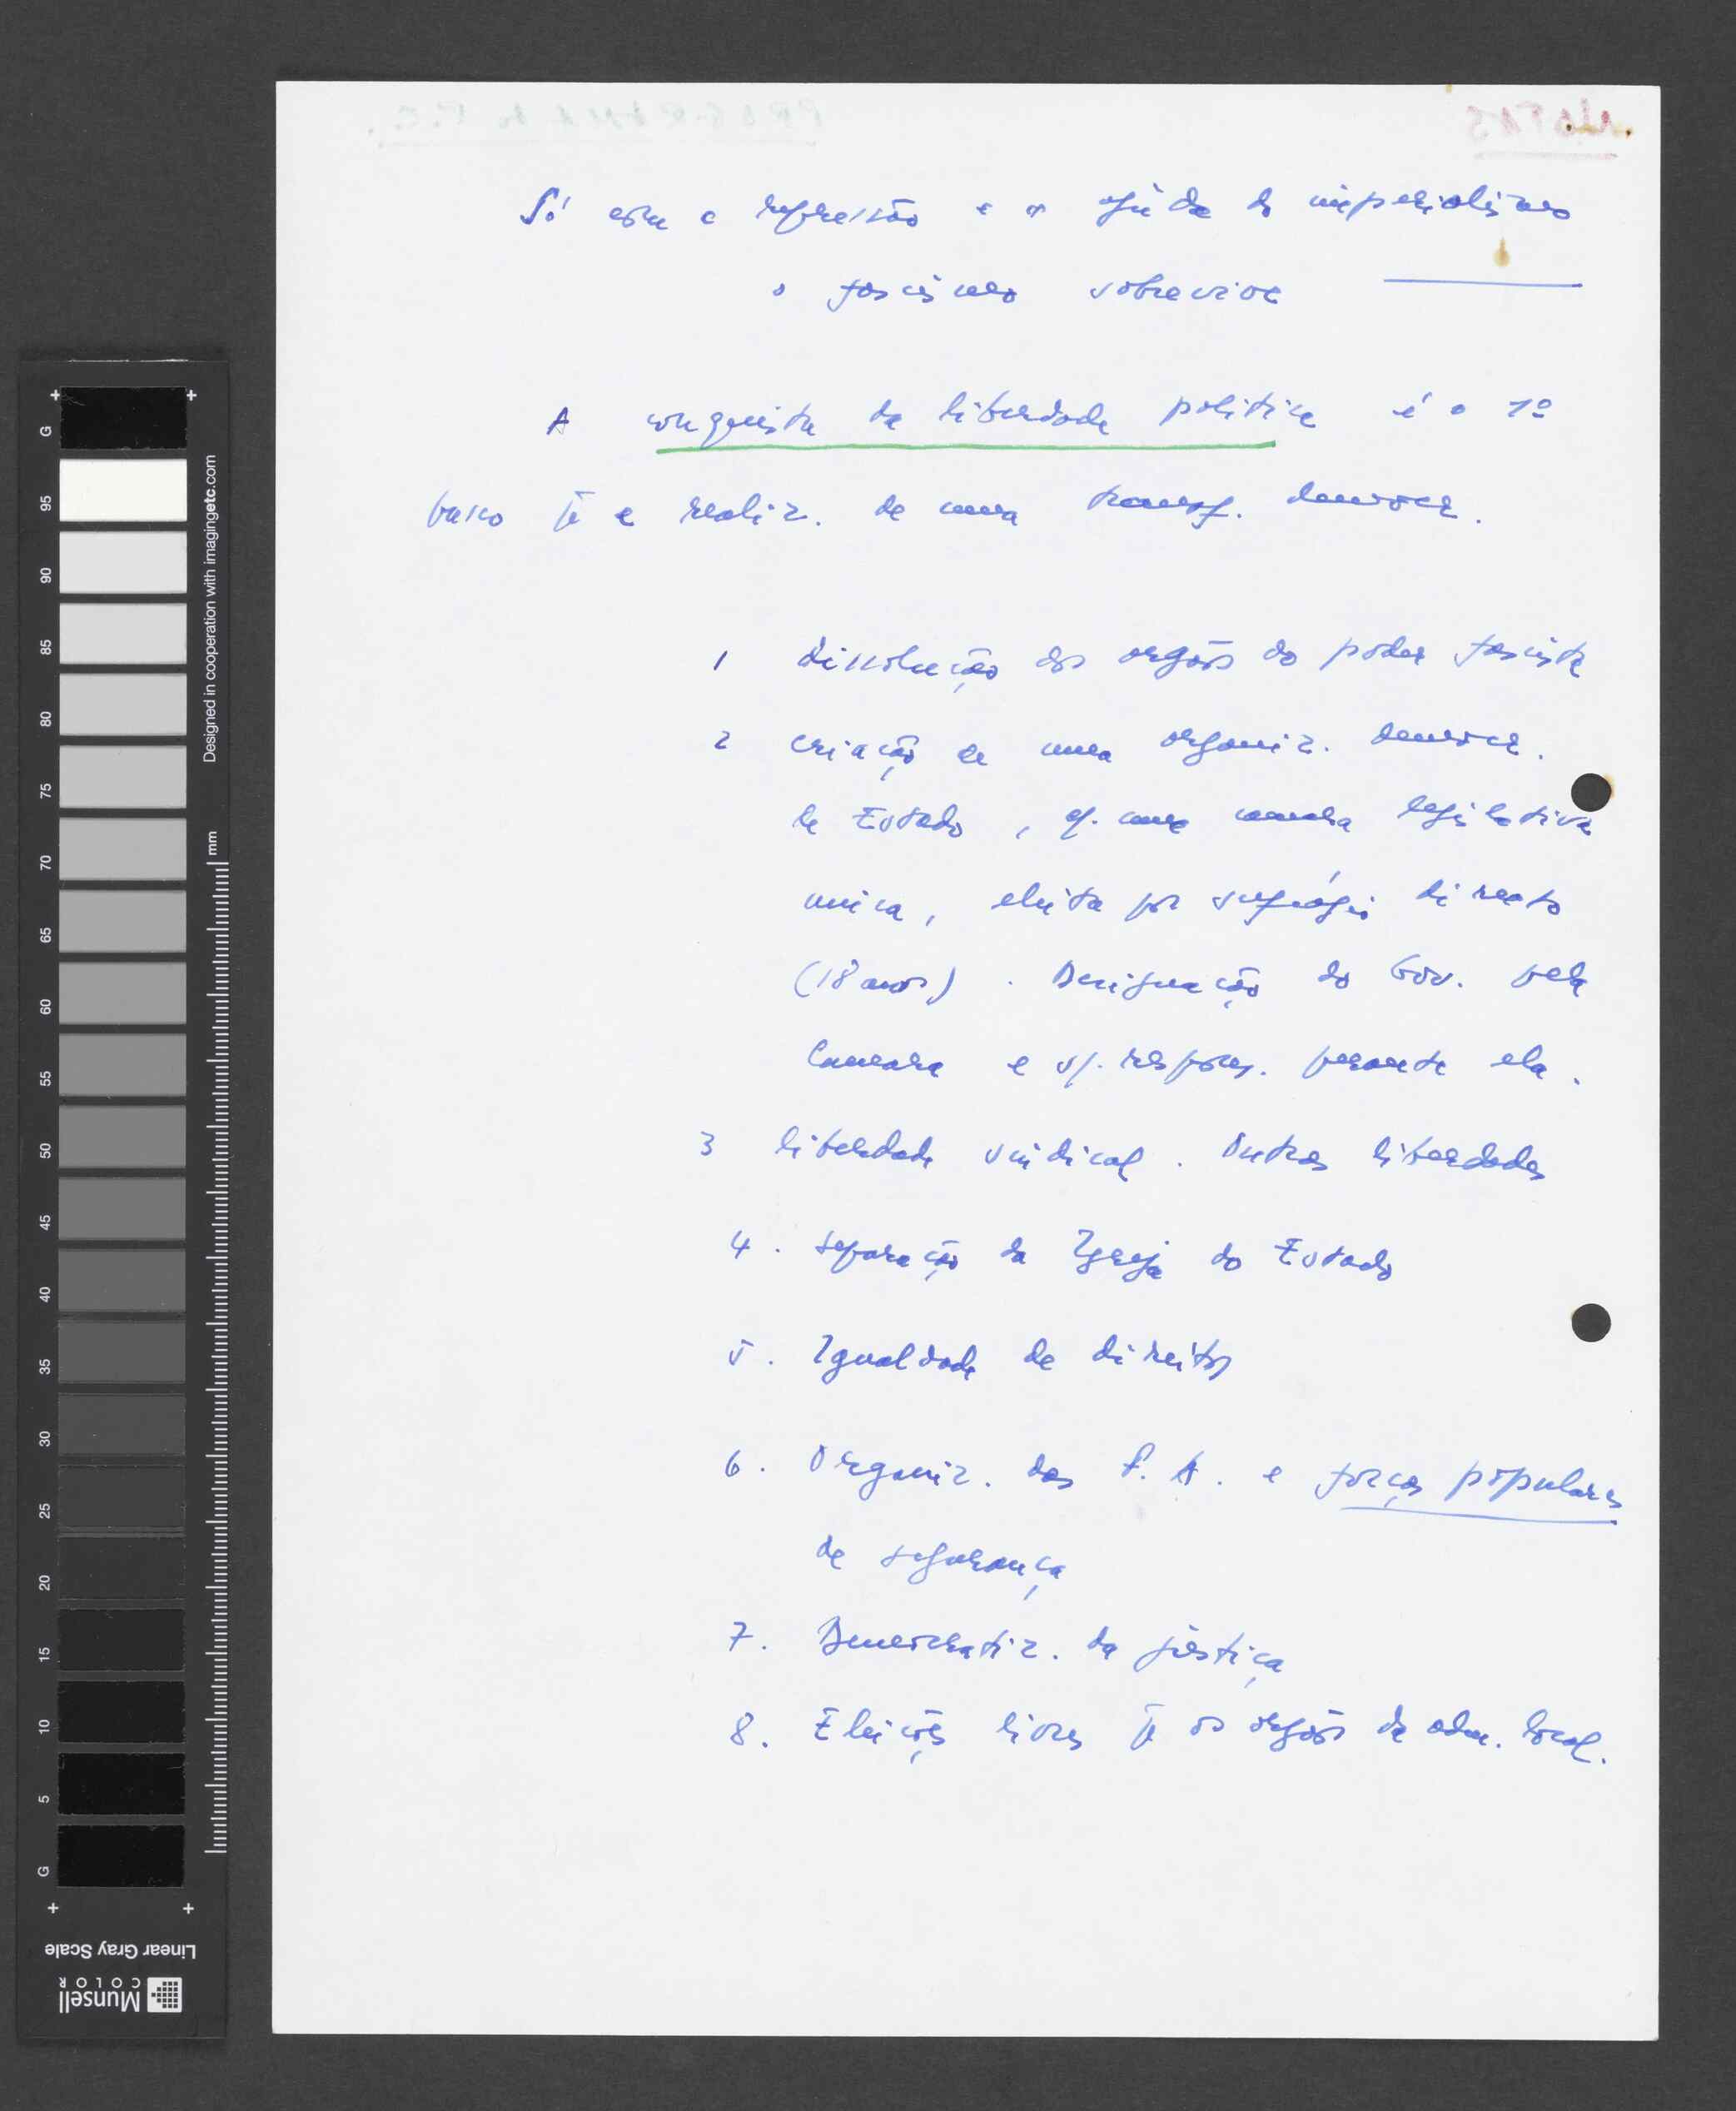 Só com a repressão e a ajuda do imperialismo
o fascismo sobrevive
A conquista da liberdade politica é o 1º
passo p̄ a realiz. de uma transf. democr.
1 dissolução dos orgãos do poder fascista
2 criação de uma organiz. democr.
de Estado, c/. uma camara legislativa
unica, eleita por sufrágio directo
(18 anos). Designação do Gov. pela
Camara e s/. respons. perante ela.
3 liberdade sindical. Outras liberdades
4. separação da Igreja do Estado
5. Igualdade de direitos
6. Organiz. das F. A. e forças populares
de segurança
7. Democratiz. da justiça
8. Eleições livres p̄ os orgãos de adm. local.
G
95
90
85
80
75
70
65
60
55
50
45
40
35
30
25
20
15
10
5
G
Designed in cooperation with imagingetc.com
mm
Linear Gray Scale
Munsell
COLOR
NOTAS
PROGRAMA do P.C.